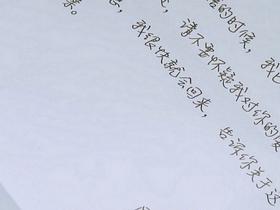 的时候，我也
，请不要怀疑我对你的
，我很快就会回来，告诉你关于这